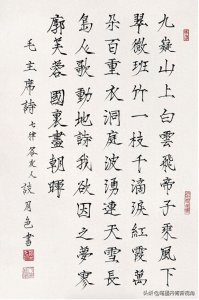 九嶷山上白雲飛帝子乘風下
翠微班竹一枝千滴淚紅霞萬
朵百重衣洞庭波湧連天雪長
島人歌動地詩我欲因之夢寥
廓芙蓉國裏盡朝暉
毛主席詩 七律 答友人 談月色書